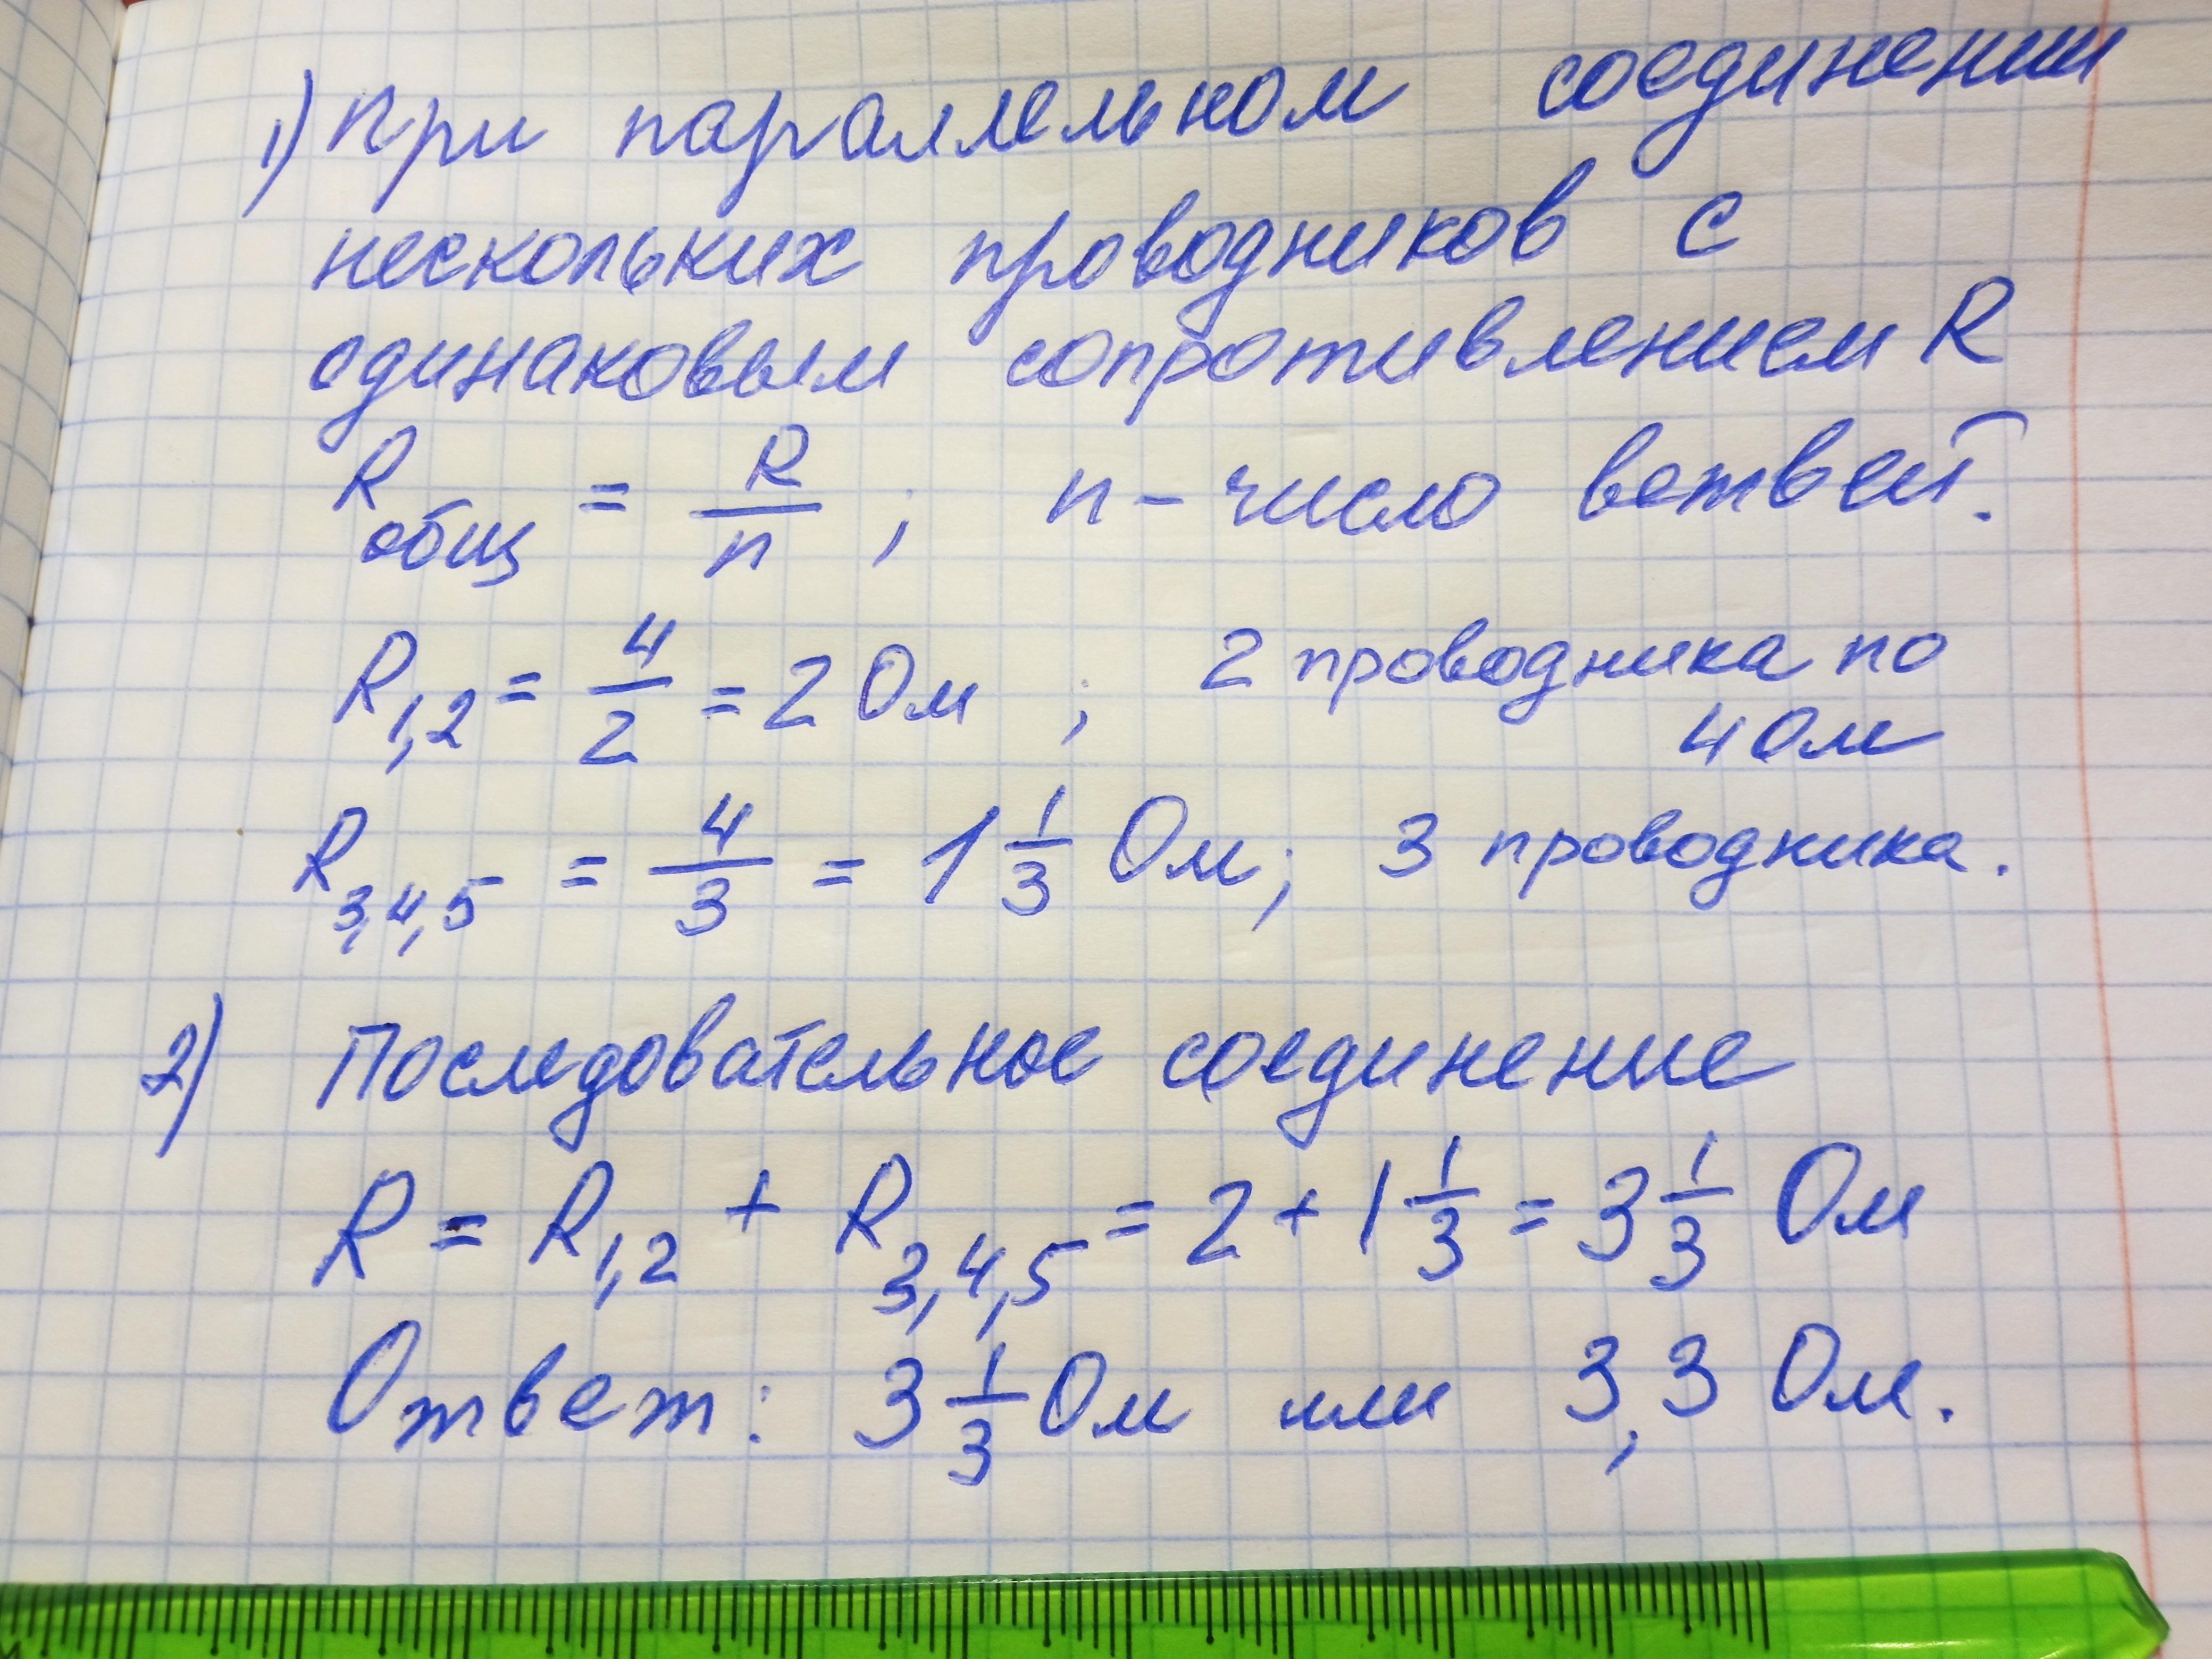 1) При параллельном соединении
нескольких проводников с
одинаковым сопротивлением R
R общ = R/n ; n - число ветвей.
R1,2 = 4/2 = 2 Ом ; 2 проводника по
4 Ом
R3,4,5 = 4/3 = 1 1/3 Ом; 3 проводника.
2) Последовательное соединение
R = R1,2 + R3,4,5 = 2 + 1 1/3 = 3 1/3 Ом
Ответ: 3 1/3 Ом или 3,3 Ом.